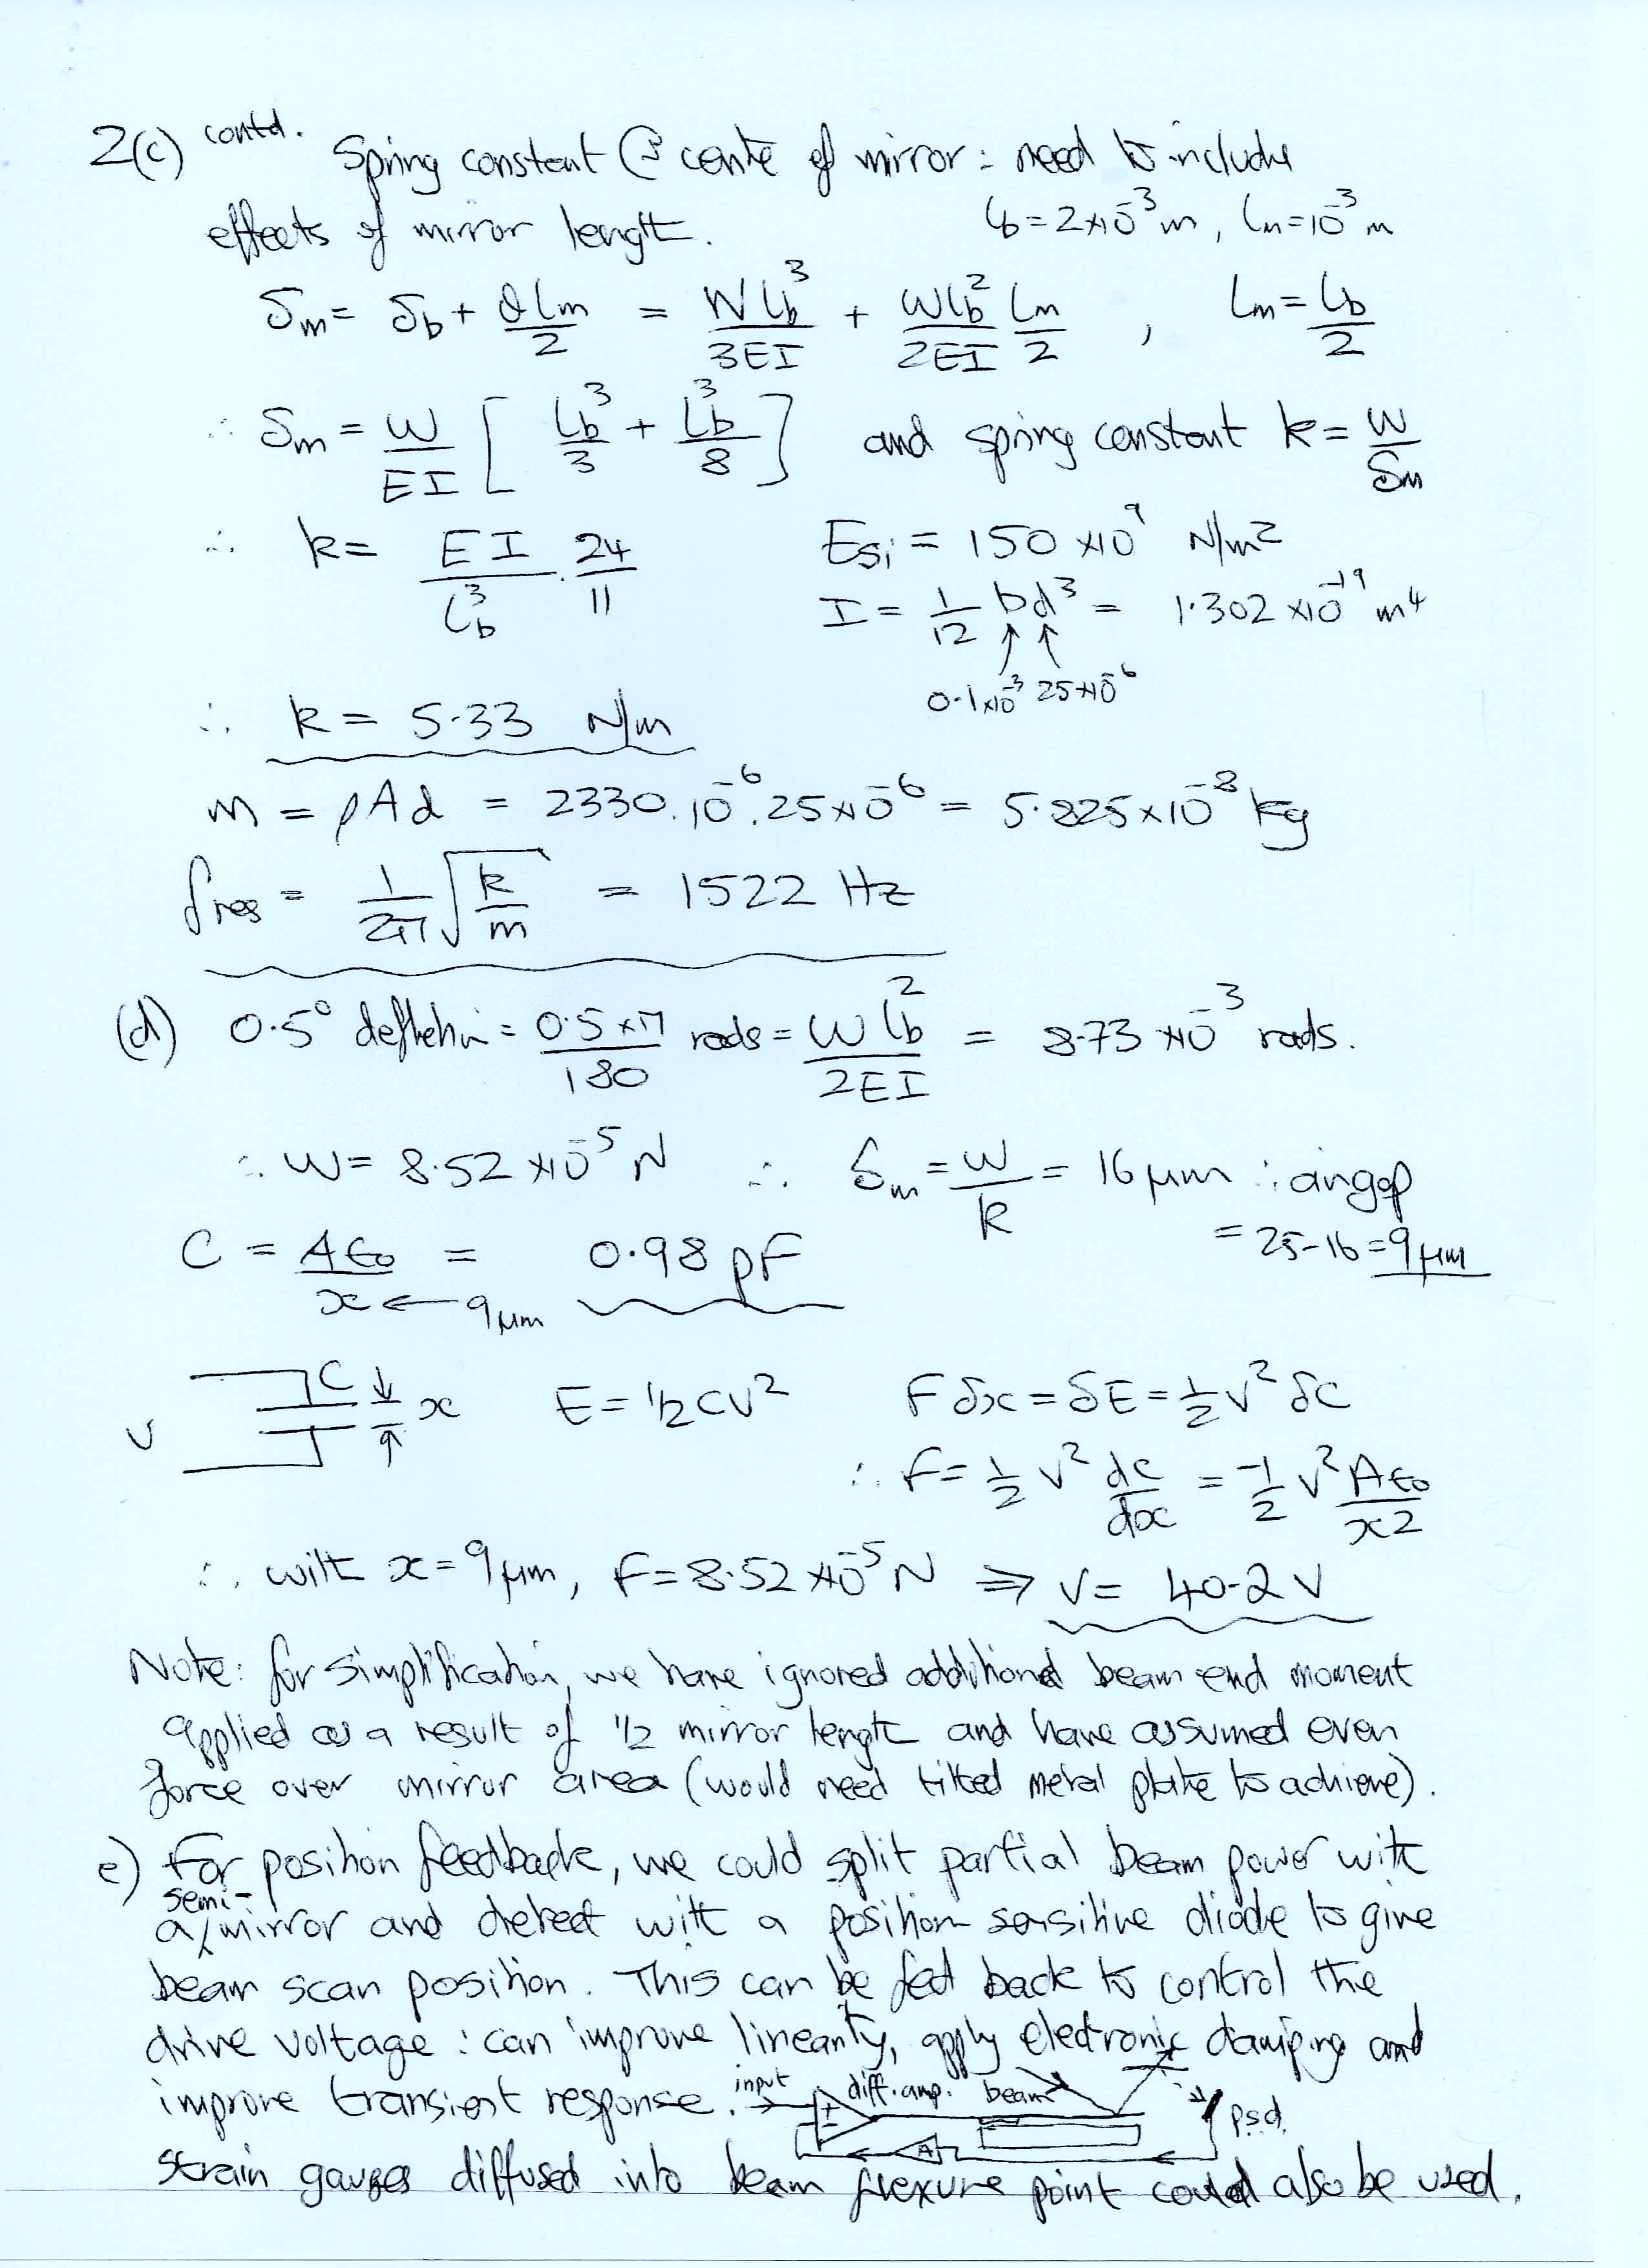 2(c) contd. Spring constant @ centre of mirror: need to include
effects of mirror length. Lb = 2×10⁻³ m, Lm = 10⁻³ m
δm = δb + θLm/2 = WLb³/3EI + WLb²/2EI Lm/2 , Lm = Lb/2
∴ δm = W/EI [ Lb³/3 + Lb³/8 ] and spring constant k = W/δm
∴ k = EI/Lb³ . 24/11 Esi = 150 ×10⁹ N/m²
I = 1/12 bd³ = 1.302 ×10⁻¹⁹ m⁴
0.1×10⁻³ 25×10⁻⁶
∴ k = 5.33 N/m
m = ρAd = 2330.10⁻⁶.25×10⁻⁶ = 5.825×10⁻⁸ kg
fres = 1/2π √(k/m) = 1522 Hz
(d) 0.5° deflection = 0.5×π/180 rads = WLb²/2EI = 8.73 ×10⁻³ rads.
∴ W = 8.52 ×10⁻⁵ N ∴ δm = W/k = 16 μm ∴ airgap
= 25-16 = 9 μm
C = Aε₀/x = 0.98 pF
x ← 9 μm
V C x E = ½CV² Fδx = δE = ½V²δC
∴ F = ½ V² dC/dx = -½ V² Aε₀/x²
∴ with x = 9 μm, F = 8.52 ×10⁻⁵ N ⇒ V = 40.2 V
Note: for simplification, we have ignored additional beam end moment
applied as a result of ½ mirror length and have assumed even
force over mirror area (would need tilted metal plate to achieve).
e) For position feedback, we could split partial beam power with
a semi-mirror and detect with a position sensitive diode to give
beam scan position. This can be fed back to control the
drive voltage : can improve linearity, apply electronic damping and
improve transient response. input diff. amp. beam
+ - A psd.
Strain gauges diffused into beam flexure point could also be used.